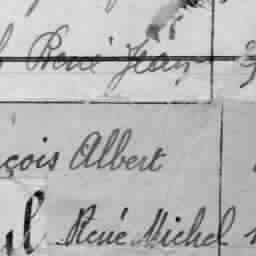 René Jean
çois Albert
René Michel